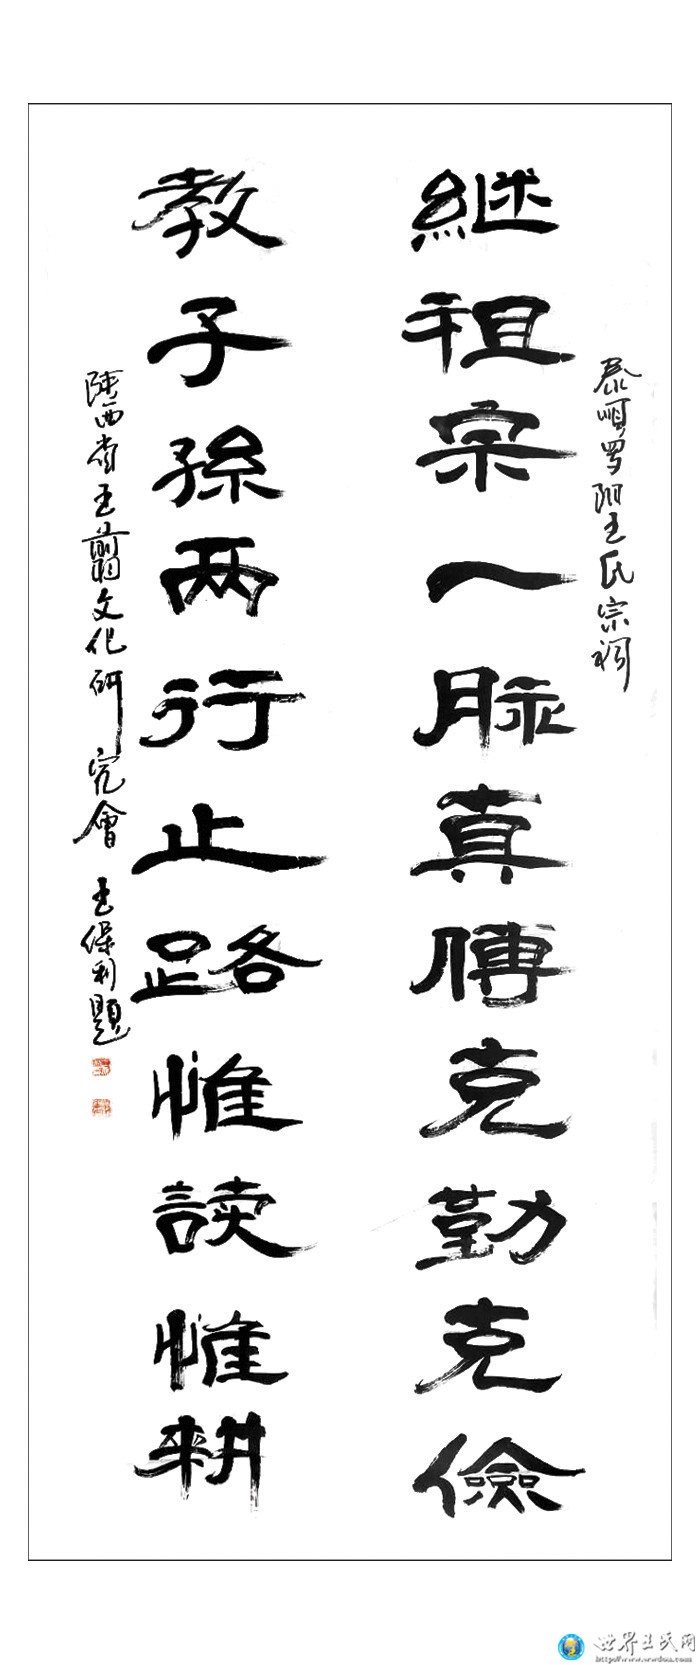 泰順罗阳王氏宗祠
继祖宗一脉真傳克勤克儉
教子孫两行止路惟读惟耕
陕西省王翦文化研究會 王保利題
世界王氏网